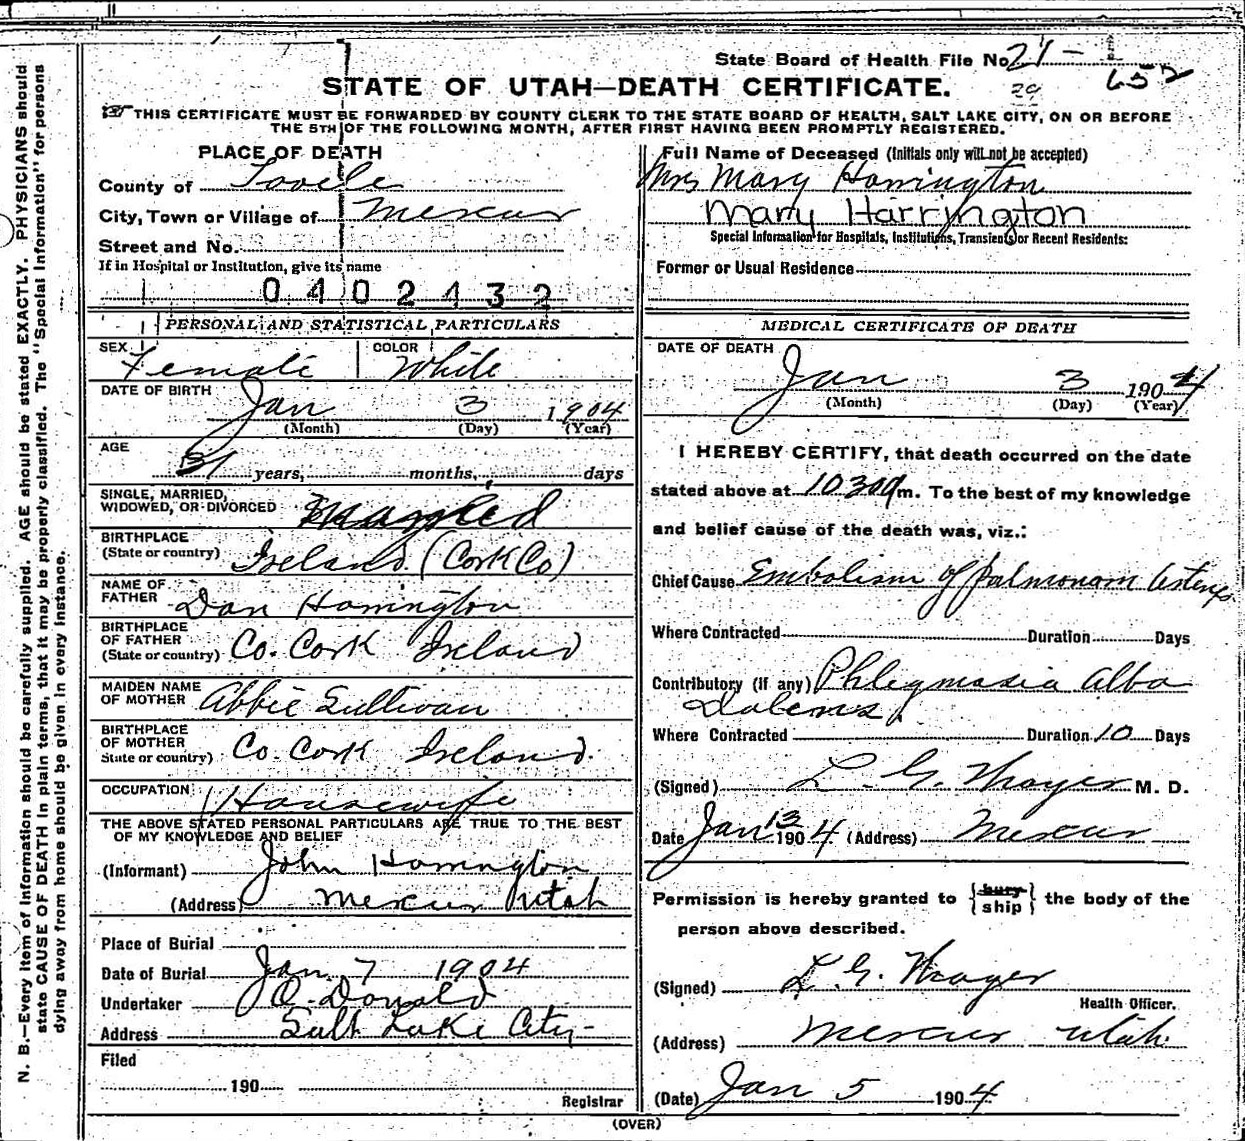 State Board of Health File No. 21 -
652
29
STATE OF UTAH—DEATH CERTIFICATE.
THIS CERTIFICATE MUST BE FORWARDED BY COUNTY CLERK TO THE STATE BOARD OF HEALTH, SALT LAKE CITY, ON OR BEFORE
THE 5TH OF THE FOLLOWING MONTH, AFTER FIRST HAVING BEEN PROMPTLY REGISTERED.
N. B.—Every item of information should be carefully supplied. AGE should be stated EXACTLY. PHYSICIANS should
state CAUSE OF DEATH in plain terms, that it may be properly classified. The "Special Information" for persons
dying away from home should be given in every instance.
PLACE OF DEATH
County of Tooele
City, Town or Village of Mercur
Street and No.
If in Hospital or Institution, give its name
0402132
PERSONAL AND STATISTICAL PARTICULARS
SEX Female COLOR White
DATE OF BIRTH Jan 3 1904
(Month) (Day) (Year)
AGE
31 years, months, days
SINGLE, MARRIED,
WIDOWED, OR DIVORCED Married
BIRTHPLACE
(State or country) Ireland (Cork Co)
NAME OF
FATHER Dan Harrington
BIRTHPLACE
OF FATHER
(State or country) Co. Cork Ireland
MAIDEN NAME
OF MOTHER Abbie Sullivan
BIRTHPLACE
OF MOTHER
State or country) Co Cork Ireland.
OCCUPATION Housewife
THE ABOVE STATED PERSONAL PARTICULARS ARE TRUE TO THE BEST
OF MY KNOWLEDGE AND BELIEF
(Informant) John Harrington
(Address) Mercur Utah
Place of Burial
Date of Burial Jan 7 1904
Undertaker O. Donald
Address Salt Lake City-
Filed
190
Registrar
Full Name of Deceased (Initials only will not be accepted)
Mrs Mary Harrington
Mary Harrington
Special Information for Hospitals, Institutions, Transients or Recent Residents:
Former or Usual Residence
MEDICAL CERTIFICATE OF DEATH
DATE OF DEATH
Jan 3 1904
(Month) (Day) (Year)
I HEREBY CERTIFY, that death occurred on the date
stated above at 10 30 a m. To the best of my knowledge
and belief cause of the death was, viz.:
Chief Cause Embolism of pulmonary
Where Contracted Duration Days
Contributory (if any) Phlegmasia Alba
Dolens
Where Contracted Duration 10 Days
(Signed) L. G. M. D.
Date Jan 13 1904 (Address) Mercur
Permission is hereby granted to {bury ship} the body of the
person above described.
(Signed) L. G.
Health Officer.
(Address) Mercur Utah.
(Date) Jan 5 1904
(OVER)